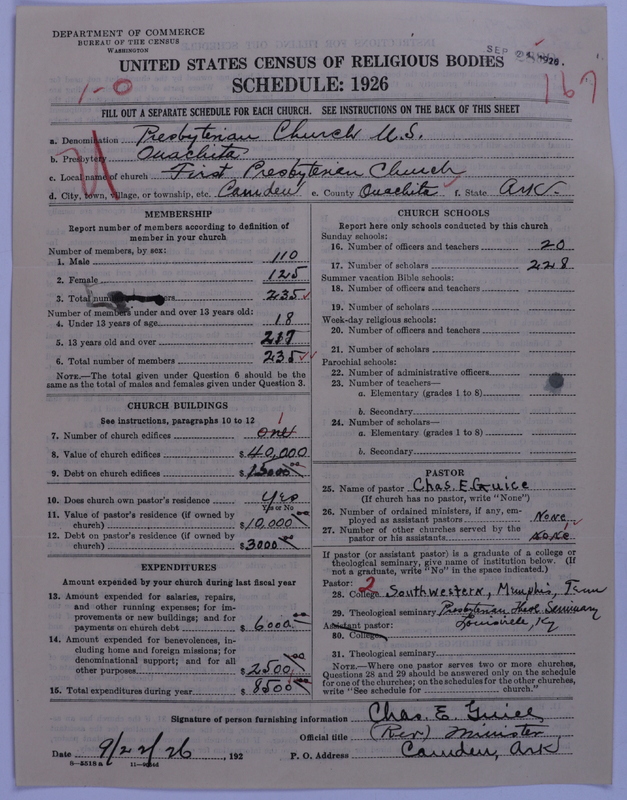 DEPARTMENT OF COMMERCE
BUREAU OF THE CENSUS
WASHINGTON
SEP 24 1926.
UNITED STATES CENSUS OF RELIGIOUS BODIES
SCHEDULE: 1926
1-0
167
FILL OUT A SEPARATE SCHEDULE FOR EACH CHURCH. SEE INSTRUCTIONS ON THE BACK OF THIS SHEET
a. Denomination Presbyterian Church U.S.
b. Presbytery Ouachita
c. Local name of church First Presbyterian Church
d. City, town, village, or township, etc. Camden e. County Ouachita f. State Ark.
MEMBERSHIP
Report number of members according to definition of
member in your church
Number of members, by sex:
1. Male 110
2. Female 125
3. Total 235
Number of members under and over 13 years old:
4. Under 13 years of age 18
5. 13 years old and over 217
6. Total number of members 235
NOTE.—The total given under Question 6 should be
the same as the total of males and females given under Question 3.
CHURCH BUILDINGS
See instructions, paragraphs 10 to 12
1
7. Number of church edifices one
8. Value of church edifices $40,000
9. Debt on church edifices $
10. Does church own pastor's residence Yes
Yes or No
11. Value of pastor's residence (if owned by
church) $10,000 00
12. Debt on pastor's residence (if owned by
church) $3000 00
EXPENDITURES
Amount expended by your church during last fiscal year
13. Amount expended for salaries, repairs,
and other running expenses; for im-
provements or new buildings; and for
payments on church debt $6000 00
14. Amount expended for benevolences, in-
cluding home and foreign missions; for
denominational support; and for all
other purposes $2500 00
15. Total expenditures during year $8500 00
CHURCH SCHOOLS
Report here only schools conducted by this church
Sunday schools:
16. Number of officers and teachers 20
17. Number of scholars 228
Summer vacation Bible schools:
18. Number of officers and teachers
19. Number of scholars
Week-day religious schools:
20. Number of officers and teachers
21. Number of scholars
Parochial schools:
22. Number of administrative officers
23. Number of teachers—
a. Elementary (grades 1 to 8)
b. Secondary
24. Number of scholars—
a. Elementary (grades 1 to 8)
b. Secondary
PASTOR
25. Name of pastor Chas. E. Guice
(If church has no pastor, write "None")
26. Number of ordained ministers, if any, em-
ployed as assistant pastors None
27. Number of other churches served by the
pastor or his assistants None
If pastor (or assistant pastor) is a graduate of a college or
theological seminary, give name of institution below. (If
not a graduate, write "No" in the space indicated.)
Pastor: 2
28. College Southwestern, Memphis, Tenn
29. Theological seminary Presbyterian Theol. Seminary
Assistant pastor: Louisville, Ky
30. College
31. Theological seminary
NOTE.—Where one pastor serves two or more churches,
Questions 28 and 29 should be answered only on the schedule
for one of the churches; on the schedules for the other churches,
write "See schedule for church."
Signature of person furnishing information Chas. E. Guice
Official title (Rev) Minister
Date 9/22/26, 192 P. O. Address Camden, Ark
8—5518 a